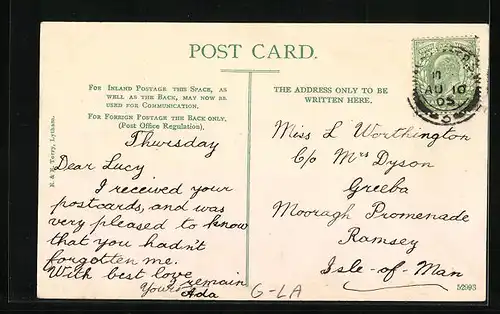 POST CARD.
FOR INLAND POSTAGE THIS SPACE, AS
WELL AS THE BACK, MAY NOW BE
USED FOR COMMUNICATION.
FOR FOREIGN POSTAGE THE BACK ONLY,
(Post Office Regulation).
THE ADDRESS ONLY TO BE
WRITTEN HERE.
AU 10
05
Thursday
Dear Lucy
I received your
postcards, and was
very pleased to know
that you hadn't
forgotten me.
With best love
I remain
Yours
Ada
Miss L Worthington
C/o Mrs Dyson
Greeba
Mooragh Promenade
Ramsey
Isle-of-Man
G-LA
52993
Terry, Lytham.